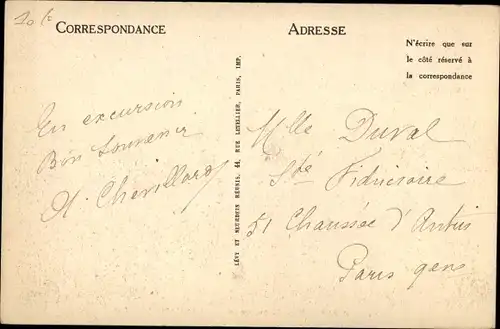 CORRESPONDANCE
En excursion
Bon Souvenir
H. Chevillard
LÉVY ET NEURDEIN RÉUNIS, 44, RUE LETELLIER, PARIS, IMP.
ADRESSE
N'écrire que sur
le côté réservé à
la correspondance
Mlle Duval
Sté Fiduciaire
51 Chaussée d'Antin
Paris 9ème